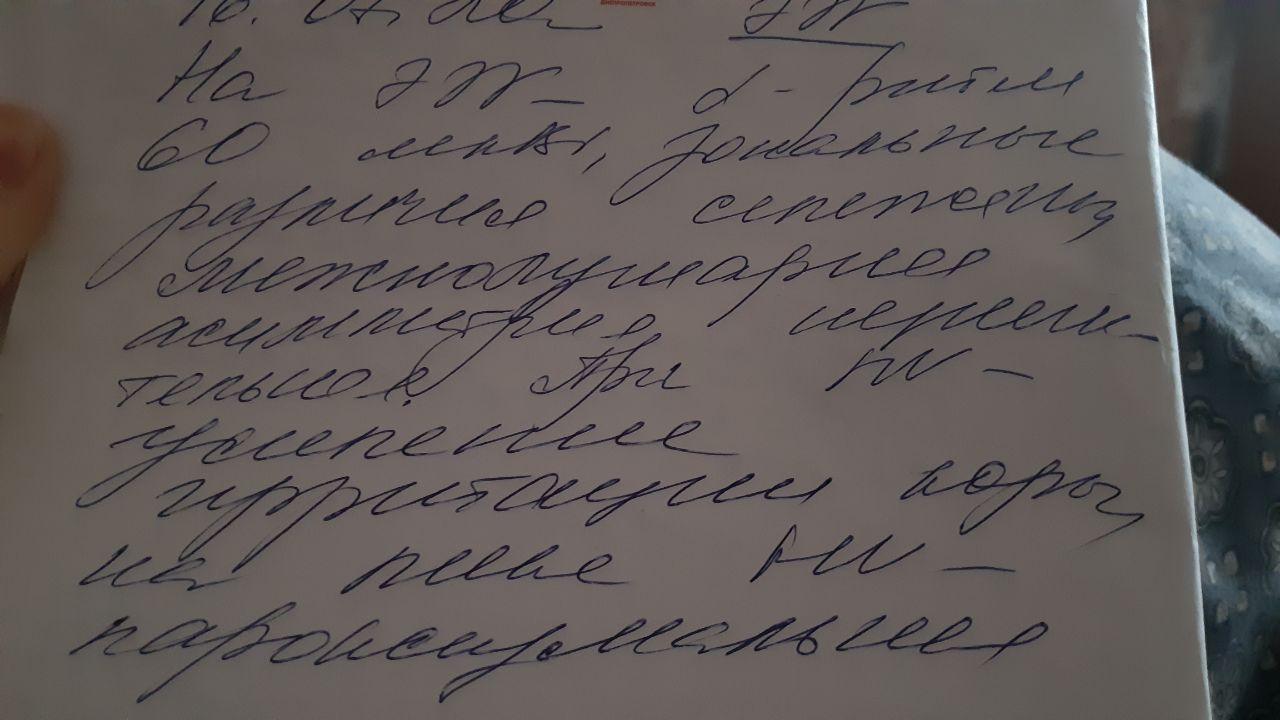 ДНЕПРОПЕТРОВСК
ЭЭГ
На ЭЭГ – α - ритм
60 мкв, зональные
различия сглажены,
межполушарная
асимметрия незначи-
тельная. При ГВ –
усиление
ирритации коры,
на пике ГВ –
пароксизмальная